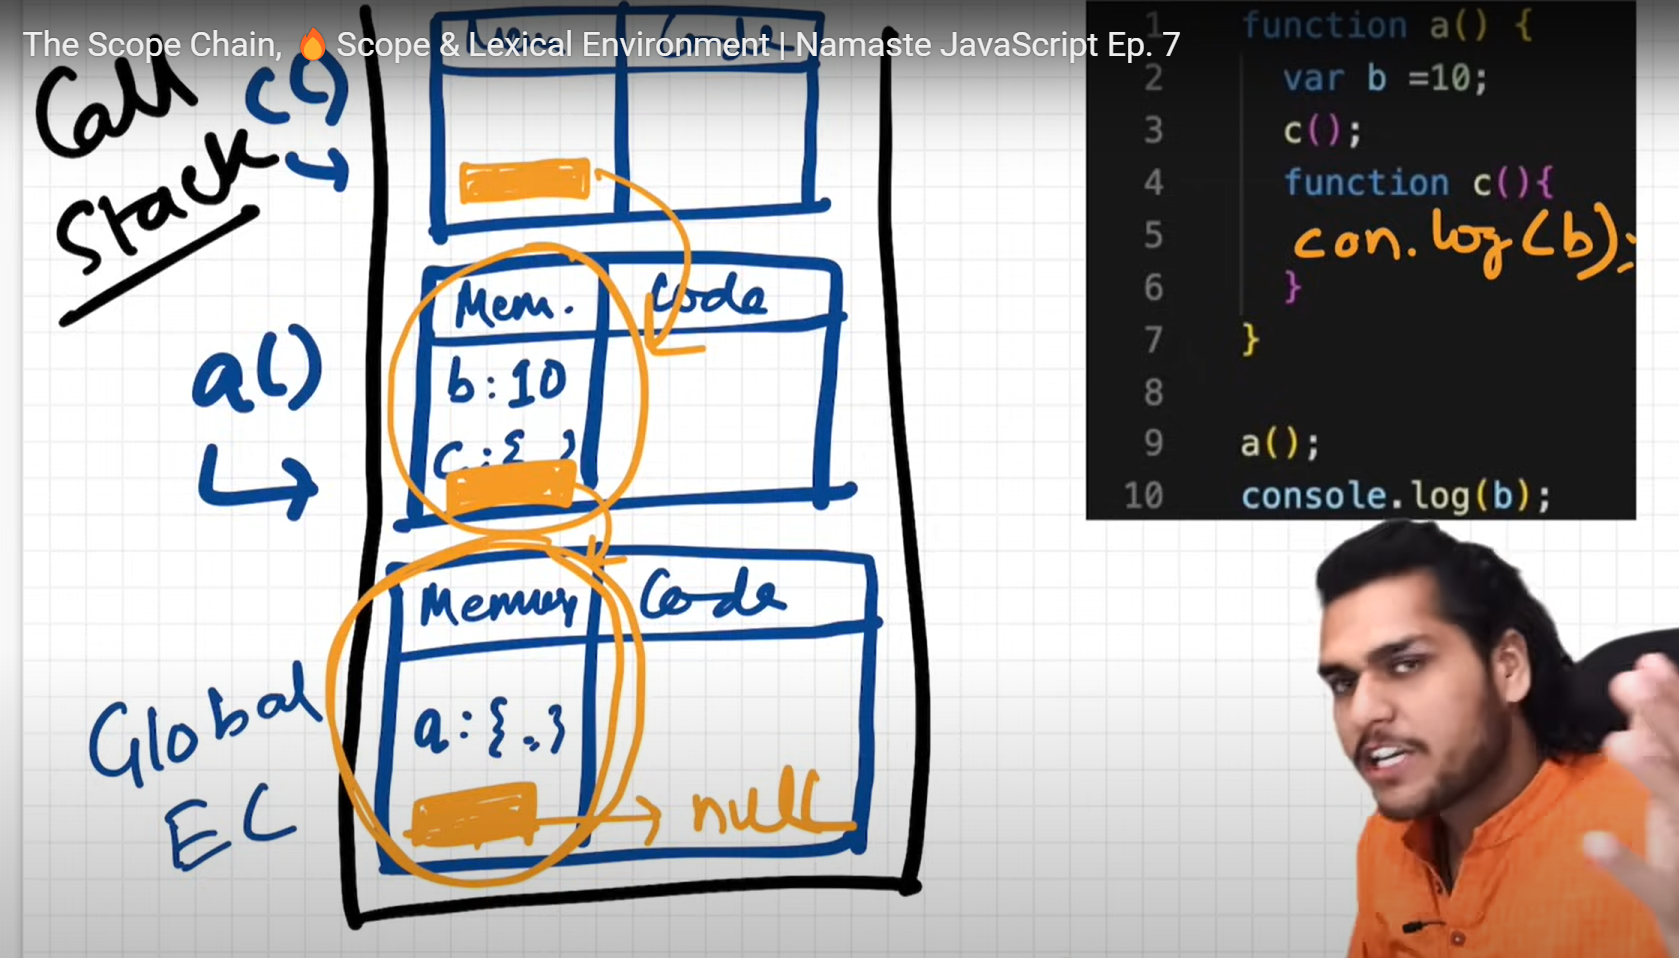 The Scope Chain, 🔥 Scope & Lexical Environment | Namaste JavaScript Ep. 7
Call
Stack
c()
Code
a()
Mem.
Code
b : 10
c : {
Global
EC
Memory
Code
a : { . }
null
1 function a() {
2 var b =10;
3 c();
4 function c(){
5 con.log(b);
6 }
7 }
8
9 a();
10 console.log(b);